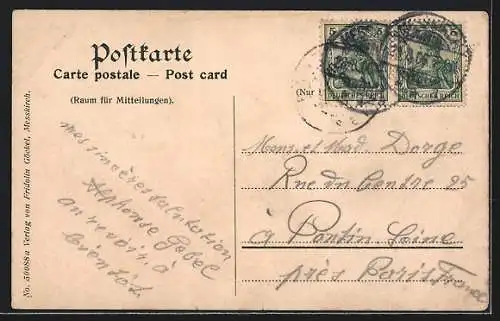 Postkarte
Carte postale — Post card
(Raum für Mitteilungen).
(Nur
5 5
DEUTSCHES REICH
mes sincères salutation
Alphonse Gobel
au revoir à
bientôt
Mons et Mad Dorge
Rue du Centre 25
à Pantin Seine
près Paris France
No. 56088a Verlag von Fridolin Göckel, Messkirch.